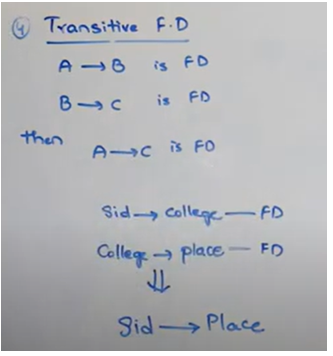 4 Transitive F.D
A → B is FD
B → C is FD
then
A → C is FD
Sid → college — FD
College → place — FD
⇓
Sid → Place